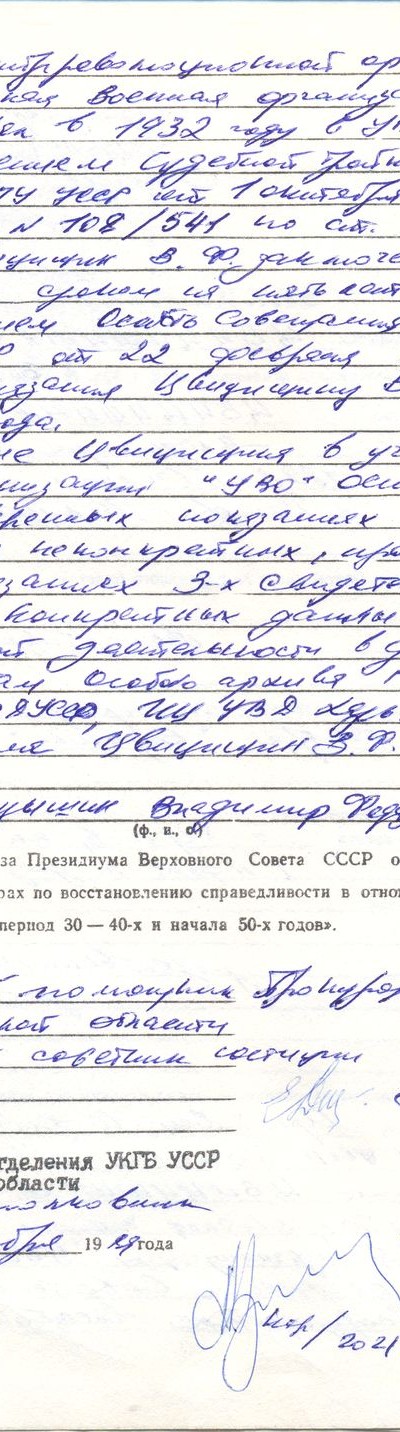 нтрреволюционной ор
ная военная организ
в 1932 году в У
ением Судебной Трой
ПУ УССР от 1 октября
N 108/541 по ст.
В. Ф. заключе
сроком на пять
ем Особ. Совещания
от 22 февраля
азания Цвицицину В
ода.
ие Цвицицина в уч
низации "УВО" осн
ренных показаниях
неконкретных, пр
заниях 3-х свидете
конкретных данны
ой деятельности в
ам Особого архива
УССР, ИЦ УВД Харь
Цвицицин В. Ф.
Владимир Фед
(ф., и., о.)
за Президиума Верховного Совета СССР о
рах по восстановлению справедливости в отно
период 30 — 40-х и начала 50-х годов».
помощник Прокурор
кой области
советник юстиции
тделения УКГБ УССР
области
полковник
бря 1989 года